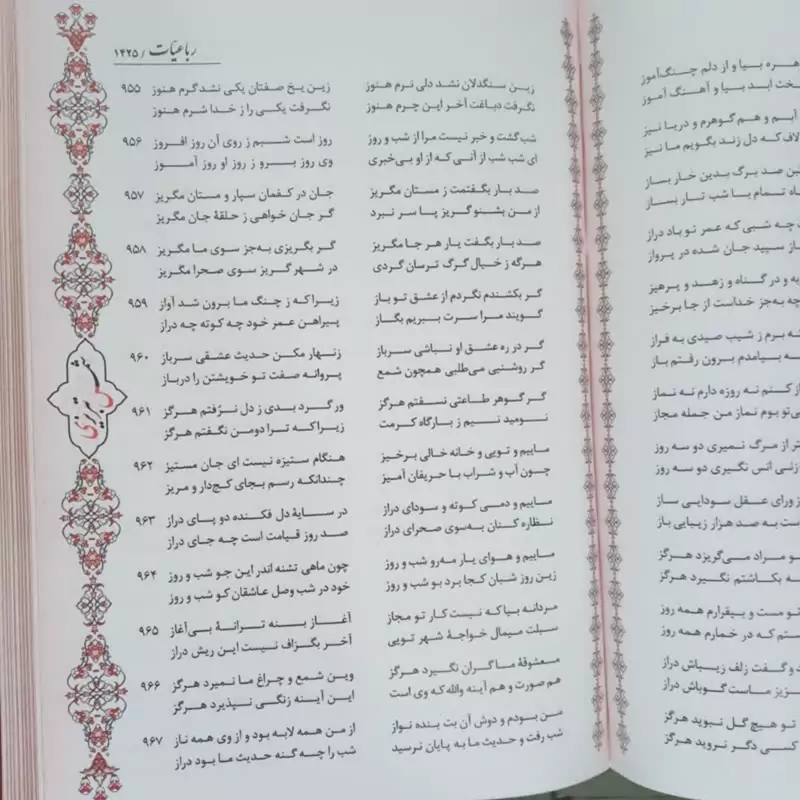 رباعیّات / ۱۴۲۵
زین سنگدلان نشد دلی نرم هنوز زین یخ صفتان یکی نشد گرم هنوز ۹۵۵
نگرفت دباغت آخر این چرم هنوز نگرفت یکی را ز خدا شرم هنوز
شب گشت و خبر نیست مرا از شب و روز روز است شبم ز روی آن روز افروز ۹۵۶
ای شب شب از آنی که از او بی‌خبری وی روز برو ز روز او روز آموز
صد بار بگفتمت ز مستان مگریز جان در کفمان سپار و مستان مگریز ۹۵۷
از من بشنو گریز پا سر نبرد گر جان خواهی ز حلقهٔ جان مگریز
صد بار بگفت یار هر جا مگریز گر بگریزی به‌جز سوی ما مگریز ۹۵۸
هرگه ز خیال گرگ ترسان گردی در شهر گریز سوی صحرا مگریز
گر بکشندم نگردم از عشق تو باز زیرا که ز چنگ ما برون شد آواز ۹۵۹
گویند مرا سرت ببریم بگاز پیراهن عمر خود چه کوته چه دراز
گر در ره عشق او نباشی سرباز زنهار مکن حدیث عشقی سرباز ۹۶۰
گر روشنی می‌طلبی همچون شمع پروانه صفت تو خویشتن را درباز
گر گوهر طاعتی نسفتم هرگز ور گرد بدی ز دل نرُفتم هرگز ۹۶۱
نومید نسیم ز بارگاه کرمت زیرا که ترا دو من نگفتم هرگز
ماییم و تویی و خانه خالی برخیز هنگام ستیزه نیست ای جان مستیز ۹۶۲
چون آب و شراب با حریفان آمیز چندانکه رسم بجای کج‌دار و مریز
ماییم و دمی کوته و سودای دراز در سایهٔ دل فکنده دو پای دراز ۹۶۳
نظاره کنان به‌سوی صحرای دراز صد روز قیامت است چه جای دراز
ماییم و هوای یار مه‌رو شب و روز چون ماهی تشنه اندر این جو شب و روز ۹۶۴
زین روز شبان کجا برد بو شب و روز خود در شب وصل عاشقان کو شب و روز
مردانه بیا که نیست کار تو مجاز آغاز بنه ترانهٔ بی‌آغاز ۹۶۵
سبلت میمال خواجهٔ شهر تویی آخر بگزاف نیست این ریش دراز
معشوقهٔ ما گران نگیرد هرگز وین شمع و چراغ ما نمیرد هرگز ۹۶۶
هم صورت و هم آینه والله که وی است این آینه زنگی نپذیرد هرگز
من بودم و دوش آن بت بنده نواز از من همه لابه بود و از وی همه ناز ۹۶۷
شب رفت و حدیث ما به پایان نرسید شب را چه گنه حدیث ما بود دراز
شمس تبریزی
بیا و از دلم چنگ‌آموز
ابد بیا و آهنگ آموز
و هم گوهرم و دریا نیز
که دل زند بگویم ما نیز
صد برگ بدین خار بساز
تمام با شب تار بساز
چه شبی که عمر تو باد دراز
سپید جان شده در پرواز
و در گناه و زهد و پرهیز
به‌جز خداست از جا برخیز
برم ز شیب صیدی به فراز
بیامدم برون رفتم باز
کنم نه روزه دارم نه نماز
تو بوم نماز من جمله مجاز
از مرگ نمیری دو سه روز
زنی انس نگیری دو سه روز
ز ورای عقل سودایی ساز
به صد هزار زیبایی باز
مراد می‌گریزد هرگز
بکاشتم نگیرد هرگز
مست و بیقرارم همه روز
که در خمارم همه روز
و گفت زلف زیباش دراز
ماست گو باش دراز
تو هیچ گل نبوید هرگز
کسی دگر نروید هرگز